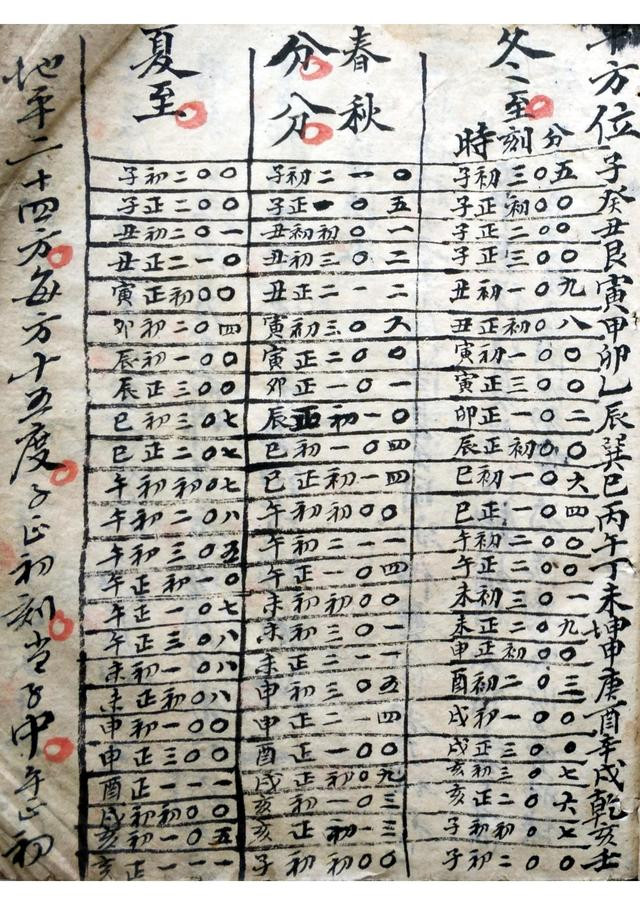 方位子癸丑艮寅甲卯乙辰巽巳丙午丁未坤申庚酉辛戌乾亥壬
冬至
時刻分
子初三〇五
子正初〇〇
子正二〇〇
子正三〇〇
丑初一〇九
丑正初〇八
寅初一〇〇
寅正三〇〇
卯正一〇二
辰正初〇〇
巳初一〇六
巳正一〇四
午初二〇〇
午正二〇〇
未初三〇一
未正二〇九
申正初〇〇
酉初二〇三
戌初一〇〇
戌正三〇〇
亥初三〇七
亥正二〇六
子初初〇七
子初二〇〇
春分
秋分
子初二一〇
子正一〇五
丑初初〇一
丑初三〇二
丑正二一二
寅初三〇六
寅正二〇〇
卯正一〇一
辰正初一〇
巳初一〇四
巳正初一四
午初初〇〇
午初二一一
午正一〇四
未初初〇〇
未初三〇一
未正二一一
申初三〇五
申正二一四
酉正一〇〇
戌正初〇九
亥初一〇三
亥正初一三
子初初〇〇
夏至
子初二〇〇
子正二〇〇
丑初二〇一
丑正二一〇
寅正初〇〇
卯初二〇四
辰初一〇〇
辰正三〇〇
巳初三〇七
巳正二〇七
午初初〇七
午初二〇八
午初三〇五
午正初一〇
午正一〇七
午正三〇八
未初一〇八
未正初〇八
申初一〇〇
申正三〇〇
酉正一一一
戌初初〇〇
亥初一〇五
亥正一一一
地平二十四方每方十五度子正初刻当子中午正初